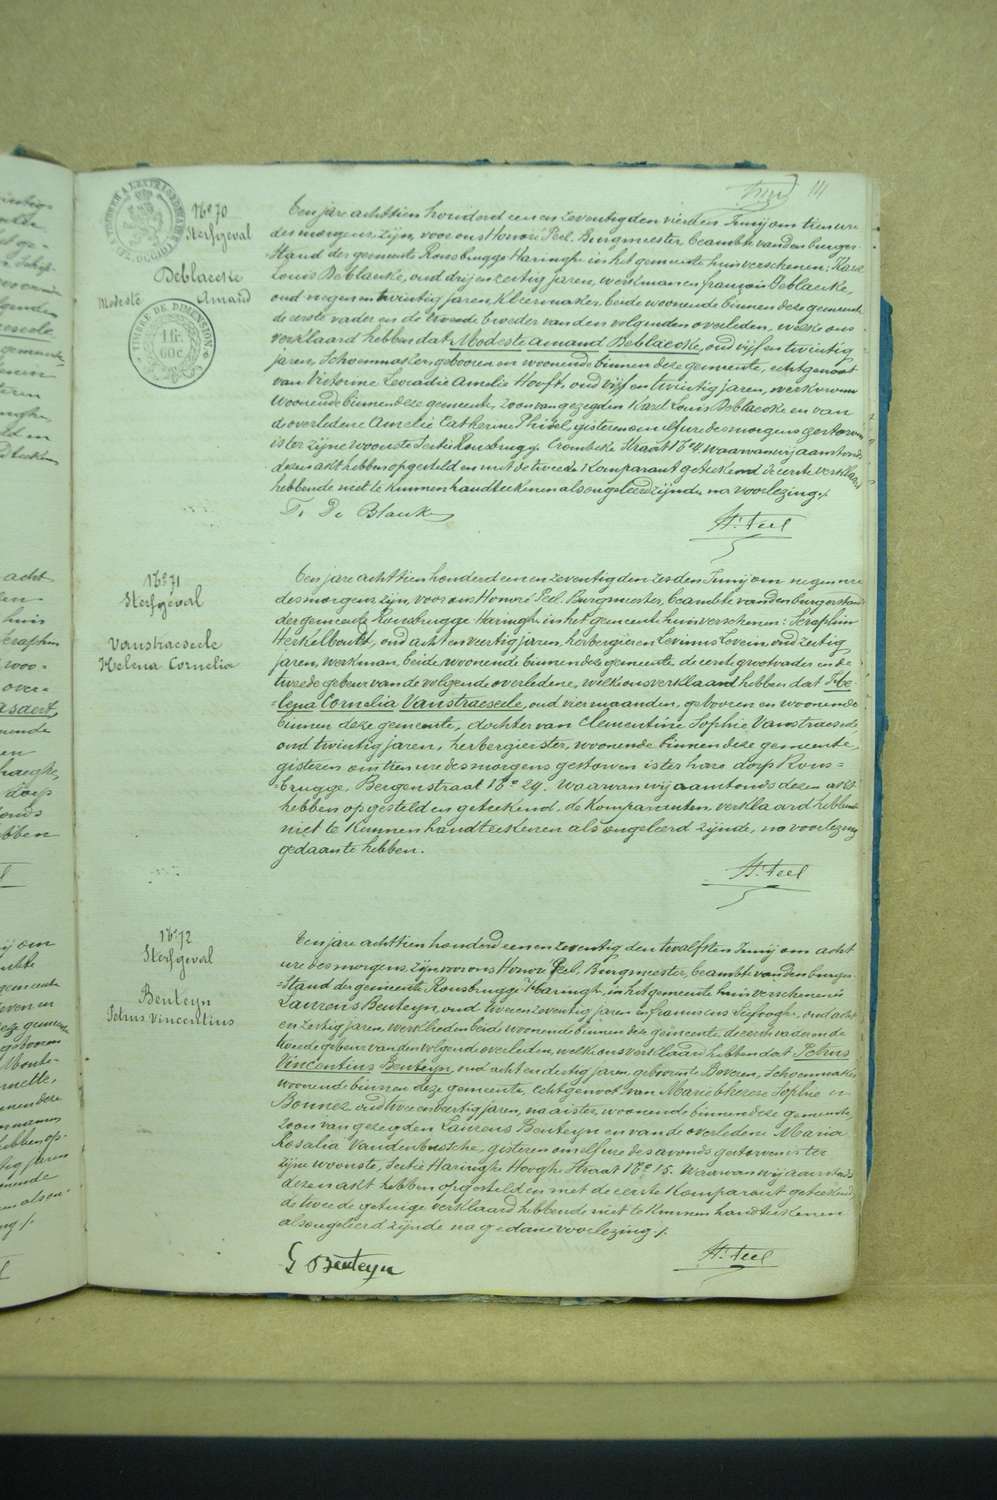 111
N° 70
Sterfgeval
Deblaecke
Modeste Amand
TIMBRE DE DIMENSION
1 fr. 60c
Een jare achttien honderd een en zeventig den vierden Junij om tien ure
des morgens, zijn, voor ons Honoré Peel, Burgmeester, beambte van den burger
Stand der gemeente Rousbrugge Haringhe in het gemeente huis verschenen: Karel
Louis Deblaecke, oud drij en zestig jaren, werkman en françois Deblaecke,
oud negen en twintig jaren, Kleermaker, beide woonende binnen deze gemeente
de eerste vader en de tweede broeder van den volgenden overleden, welke ons
verklaard hebben dat Modeste Amand Deblaecke, oud vijf en twintig
jaren, Schoenmaker, gebooren en woonende binnen deze gemeente, echtgenoot
van Victorine Leocadie Amelie Hooft, oud vijf en twintig jaren, werkvrouw
woonende binnen deze gemeente, zoon van gezegden Karel Louis Deblaecke en van
de overledene Amelie Catherine, gisteren om elf ure des morgens gestorven
is ter zijne woonste Sectie Rousbrugge Crombeke Straat N° 4. Waarvan wij aanstonds
dezen akt hebben opgesteld en met de tweede Komparant geteekend de eerste verklaard
hebbende niet te kunnen handteekenen als ongeleerd zijnde, na voorlezing.
F. De Blauk
H. Peel
N° 71
Sterfgeval
Vanstraeseele
Helena Cornelia
Een jare achttien honderd een en zeventig den zesden Junij om negen ure
des morgens zijn, voor ons Honoré Peel, Burgmeester, beambte van den burgerstand
der gemeente Rousbrugge Haringhe in het gemeente huis verschenen: Seraphin
Herkelboudt, oud acht en veertig jaren, herbergier en Levinus Lovein oud zestig
jaren, werkman, beide woonende binnen deze gemeente de eerste grootvader en de
tweede gebuer van de volgende overledene, welke ons verklaard hebben dat He-
=lena Cornelia Vanstraeseele, oud vier maanden, gebooren en woonende
binnen deze gemeente, dochter van Clementine Sophie Vanstraeseele,
oud twintig jaren, herbergierster, woonende binnen deze gemeente,
gisteren om tien ure des morgens gestorven is ter hare dorp Rous=
=brugge, Bergenstraat N° 29. Waarvan wij aanstonds dezen akt
hebben opgesteld en geteekend, de Komparanten, verklaard hebbende
niet te kunnen handteekenen als ongeleerd zijnde, na voorlezing
gedaan te hebben.
H. Peel
N° 72
Sterfgeval
Beuteyn
Petrus Vincentius
Een jare achttien honderd een en zeventig den twaalfsten Junij om acht
ure des morgens, zijn voor ons Honoré Peel, Burgmeester, beambte van den burger
=Stand der gemeente Rousbrugge Haringhe, in het gemeente huis verschenen
Laurens Beuteyn, oud twee en zeventig jaren en franciscus Leijboghe, oud acht
en zestig jaren, werklieden beide woonende binnen deze gemeente, de eerste vader en de
tweede gebuer van den volgende overleden, welke ons verklaard hebben dat Petrus
Vincentius Beuteyn, oud acht en dertig jaren, geboorte Boveren, Schoenmaker
woonende binnen deze gemeente, echtgenoot van Marie therese Sophie
Bonnez, oud twee en veertig jaren, naaister, woonende binnen deze gemeente,
zoon van gezegden Laurens Beuteyn en van de overledene Maria
Rosalia Vandenbossche, gisteren om elf ure des avonds gestorven is ter
zijne woonste, Sectie Haringhe Hooghe Straat N° 15. Waarvan wij aanstonds
dezen akt hebben opgesteld en met de eerste Komparant geteekend,
de tweede getuige verklaard hebbende niet te kunnen handteekenen
als ongeleerd zijnde na gedane voorlezing.
Beuteyn
H. Peel